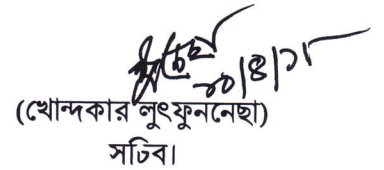 ২০/৪/১৮
(খোন্দকার লুৎফুননেছা)
সচিব।